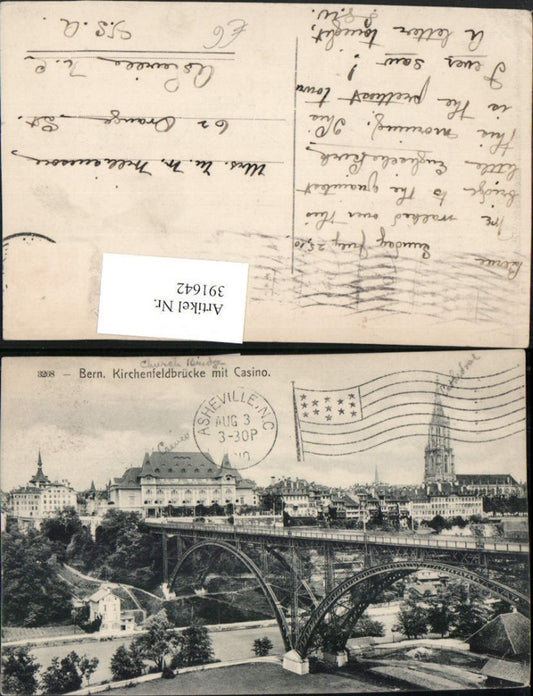 Berne
Sunday July 25, 10
We walked over this
bridge to the quaintest
little English Kirk
this morning. This
is the prettiest town
I ever saw!
A letter tonight.
Mrs. W. M.
62 Orange St.
Asheville
N.C.
U.S.A.
€6
Artikel Nr.
391642
3268 - Bern. Kirchenfeldbrücke mit Casino.
Church Bridge
Casino
ASHEVILLE, N.C.
AUG 3
3-30P